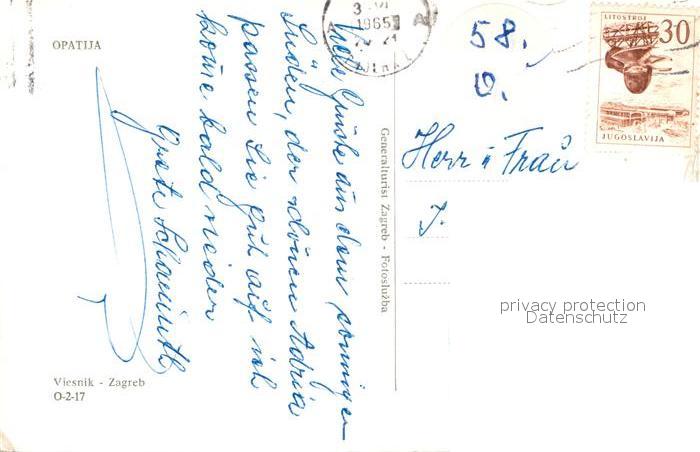 OPATIJA
3 VI
1965
A
Viele Grüße aus dem sonnigen
Süden, der schönen Adria
passen Sie gut auf ich
komme bald wieder
Grete
Viesnik - Zagreb
O-2-17
Generalturist Zagreb - Fotoslužba
58.
LITOSTROJ
30
JUGOSLAVIJA
Herr u Frau
J.
privacy protection
Datenschutz